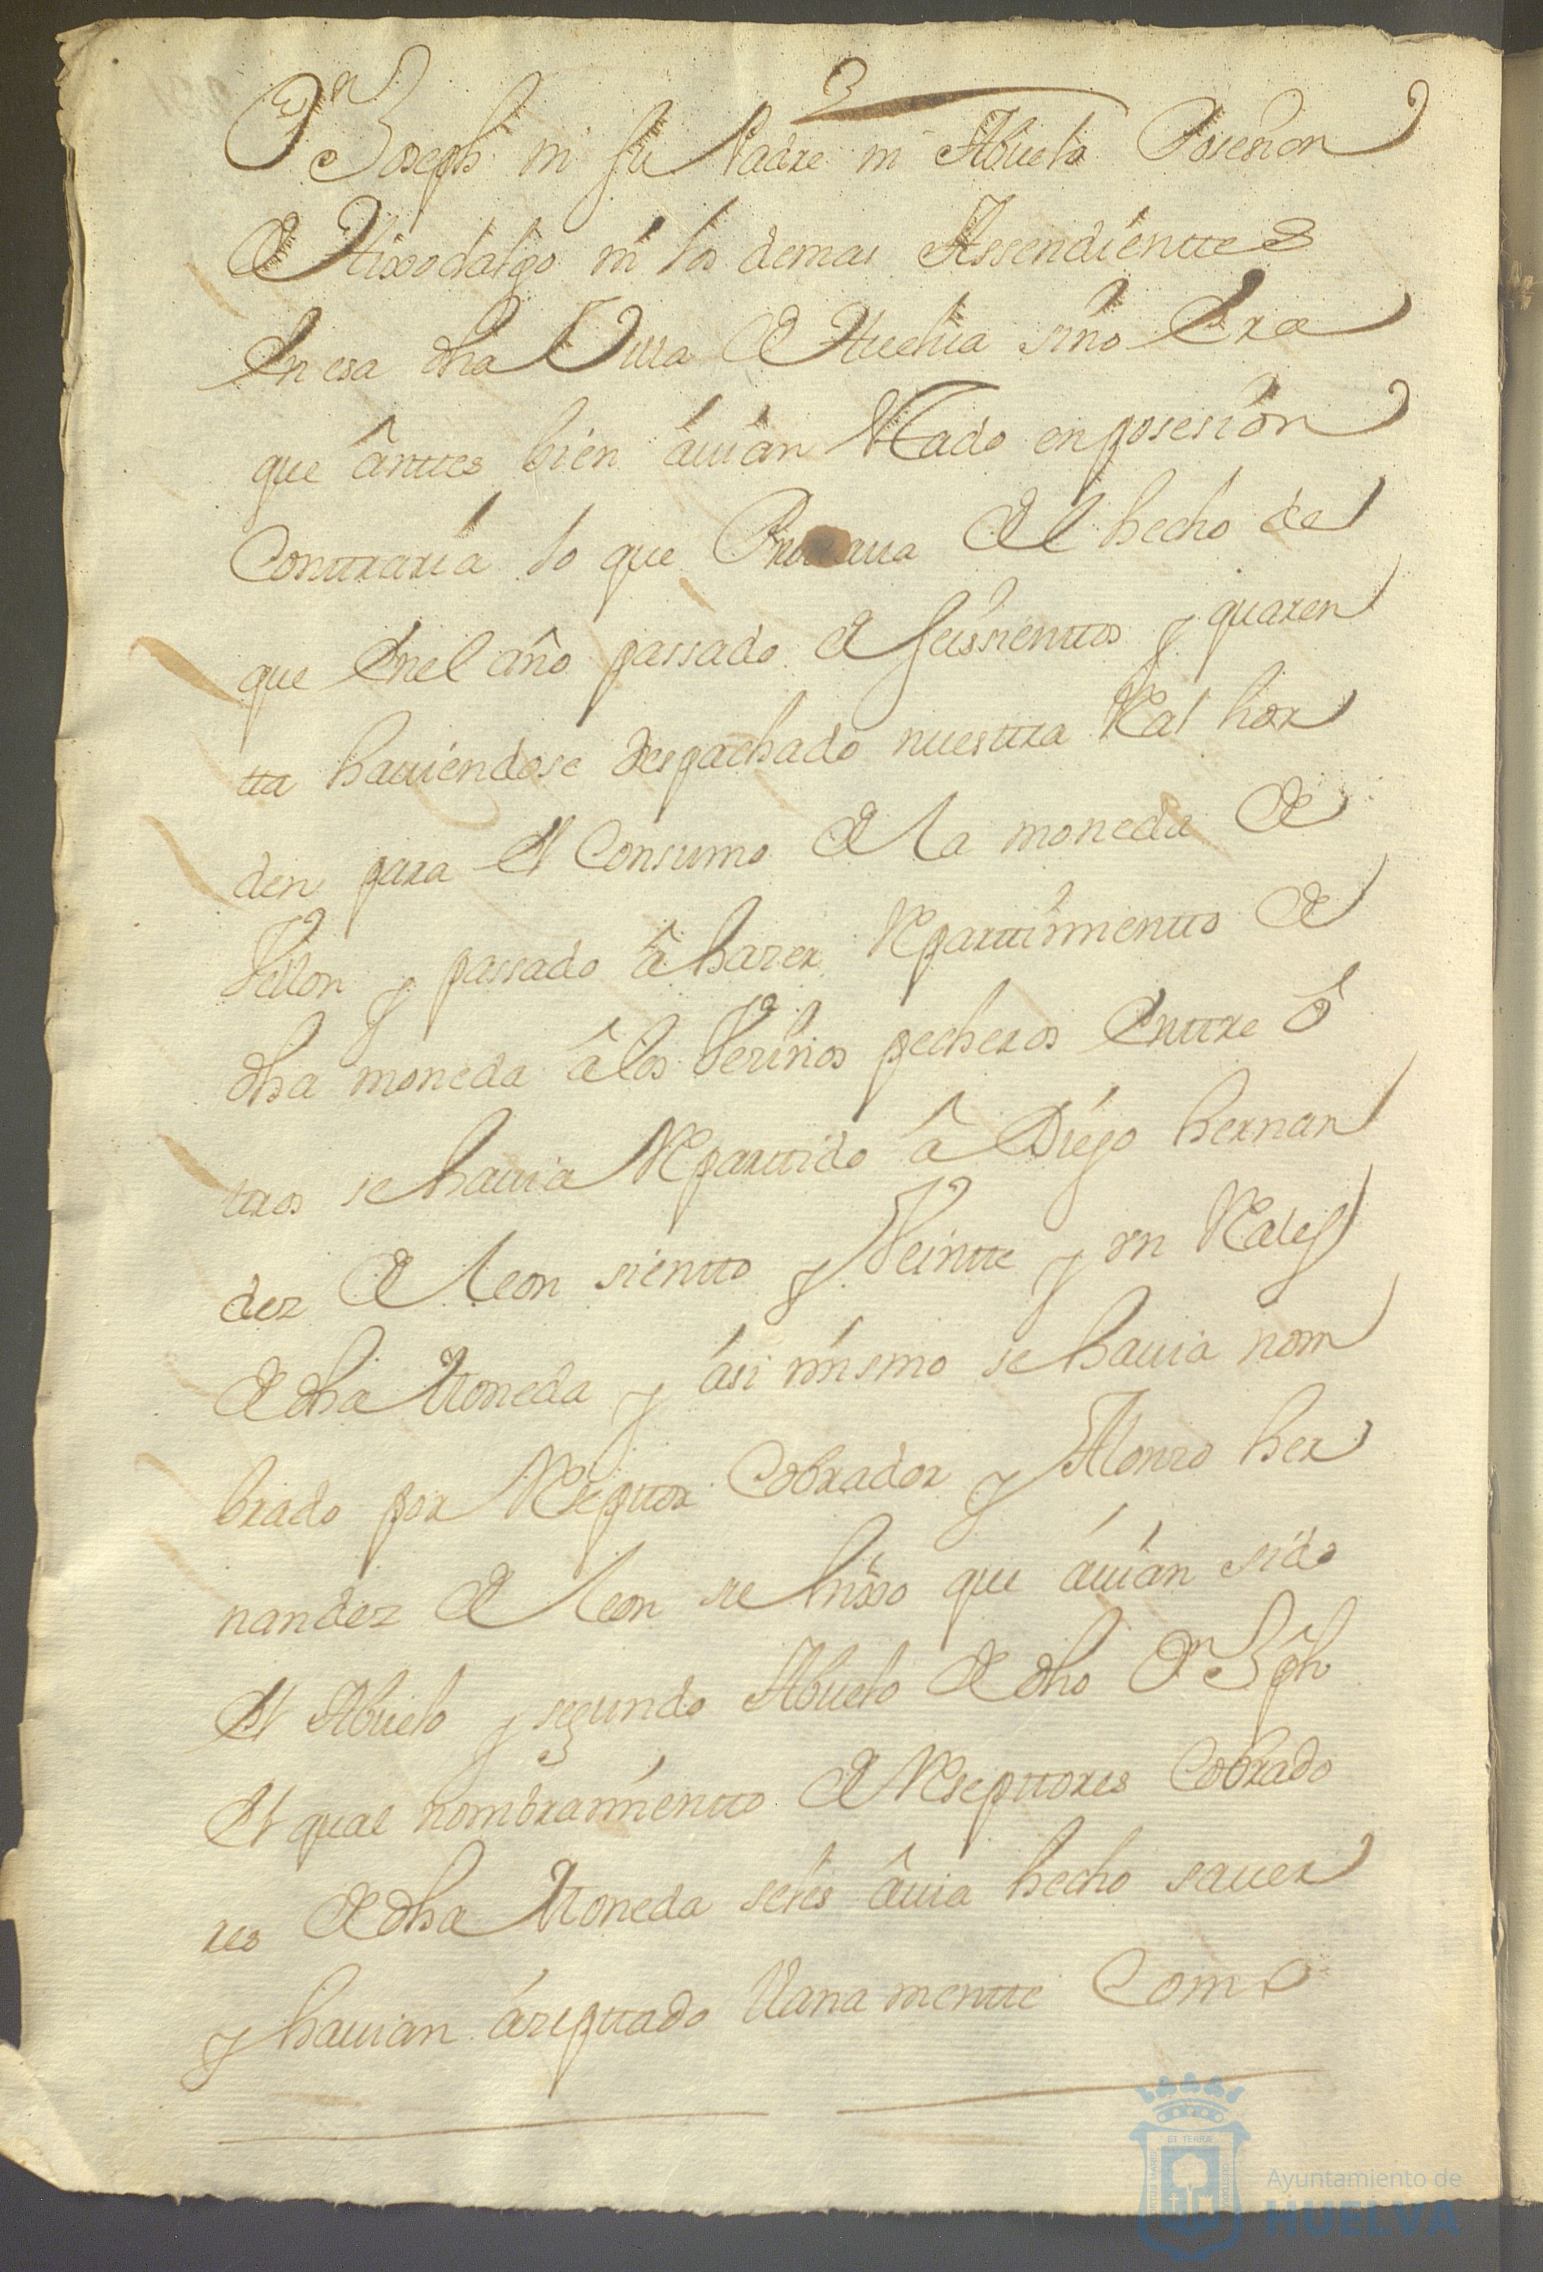 Dn Joseph ni su Padre ni Abuelo Posesion
de Hixodalgo ni los demas Assendienttes
En esa dha Villa de Huelva sino Era
que ânttes bien âuian esttado en posesion
Conttraria lo que Prouaua de el hecho de
que Enel año passado de seissienttos y quaren
tta hauiendose despachado nuesttra Real hor
den para el Consumo de la moneda de
Vellon y passado â hazer Reparttimientto de
dha moneda â los Vezinos pecheros Enttre ô
ttros se hauia Reparttido â Diego hernan
dez de leon sientto y Veintte y vn Reales
de dha Moneda y asi mismo se hauia nom
brado por Reseptor Cobrador y Alonzo her
nandez de leon su hixo que áuian sido
el Abuelo y segundo Abuelo de dho Dn Jph
el qual nombramientto de Resepttores Cobrado
res de dha Moneda seles âuia hecho sauer
y hauian ázepttado llana mentte Como
Ayuntamiento de
HUELVA